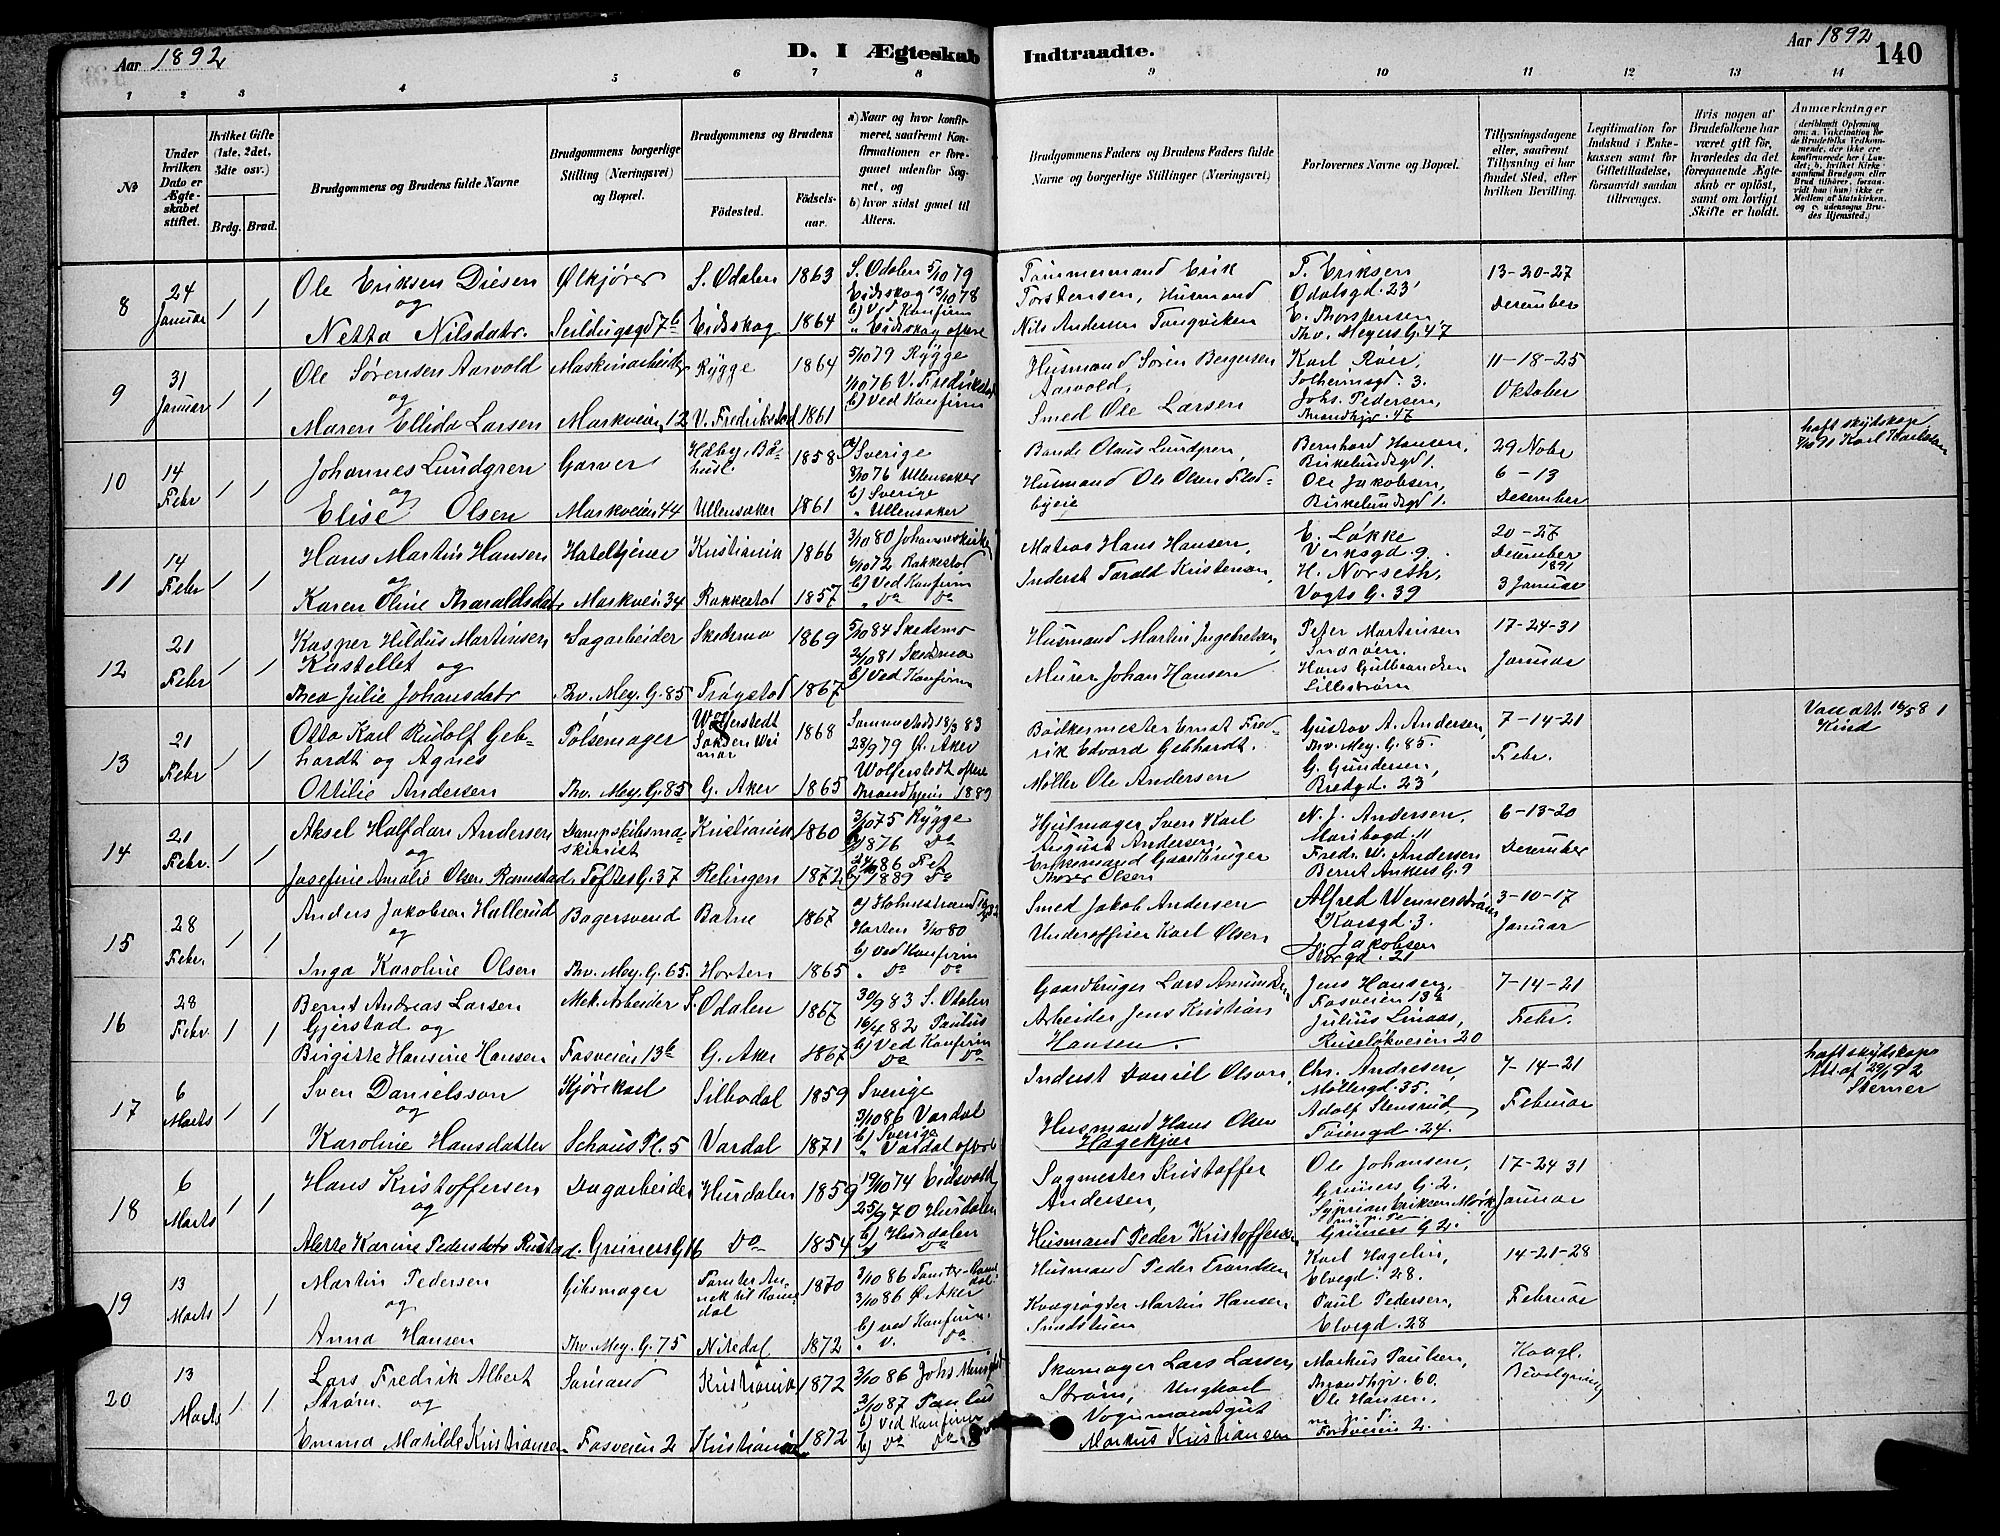 Aar 1892
D. I Ægteskab Indtraadte.
Aar 1892
140
1 2 3 4 5 6 7 8 9 10 11 12 13 14
No
Under hvilken Dato er Ægteskabet stiftet.
Hvilket Gifte (1ste, 2det, 3die osv.)
Brdg. Brud.
Brudgommens og Brudens fulde Navne
Brudgommens borgerlige Stilling (Næringsvei) og Bopæl.
Brudgommens og Brudens
Fødested.
Fødselsaar.
a) Naar og hvor konfirmeret, saafremt Konfirmationen er foregaaet udenfor Sognet, og
b) hvor sidst gaaet til Alters.
Brudgommens Faders og Brudens Faders fulde Navne og borgerlige Stillinger (Næringsvei)
Forlovernes Navne og Bopæl.
Tillysningsdagene eller, saafremt Tillysning ei har fundet Sted, efter hvilken Bevilling.
Legitimation for Indskud i Enkekassen samt for Giftetilladelse, forsaavidt saadan tiltrænges.
Hvis nogen af Brudefolkene har været gift, hvorledes da det foregaaende Ægteskab er opløst, samt om lovligt Skifte er holdt.
Anmærkninger
(deriblandt Oplysning om: a. Vakcination for de Brudefolks Vedkommende, der ikke ere konfirmerede her i Landet; b. hvilket Kirkesamfund Brudgom eller Brud tilhører, forsaavidt han (hun) ikke er Medlem af Statskirken, og c. udensogns Brudes Hjemsted.)
8
24 Januar
1 1
Ole Eriksen Diesen
og
Netta Nilsdatr.
Ølkjører
Seildugsgd 7b
S. Odalen 1863
Eidskog 1864
S. Odalen 5/10 79
Eidskog 13/10 78
b) Ved Konfirm
" Eidskog oftere
Tømmermand Erik
Torstensen, Husmand
Nils Andersen Tangviken
T. Eriksen
Odalsgd. 23
E. Thorstensen
Thv. Meyers G. 47
13-20-27
Desember
9
31 Januar
1 1
Ole Sørensen Aarvold
og
Maren Ellida Larsen
Maskinarbeider
Markveien 12
Rygge 1864
V. Fredrikstad 1861
5/10 79 Rygge
1/10 76 V. Fredrikstad
b) Ved Konfirm
Husmand Søren Bergersen
Aarvold,
Smed Ole Larsen
Karl Roer,
Solheimsgd. 3.
Johs. Pedersen,
Throndhjv. 47
11-18-25
Oktober
10
14 Febr
1 1
Johannes Lundgren
og
Elise Olsen
Garver
Markveien 44
1858
Ullensaker 1861
a) Sverige
8/10 76 Ullensaker
b) Sverige
" Ullensaker
Bonde Olaus Lundgren,
Husmand Ole Olsen Flodbyeie
Bernhard Hansen,
Birkelundsgd 1.
Ole Jakobsen,
Birkelundsgd 1.
29 Nobr
6-13
Desember
haft skydskap
11
14 Febr
1 1
Hans Martin Hansen
og
Karen Oline Tharaldsdatr
Hoteltjener
Markvei 34
Kristiania 1866
Rakkestad 1857
3/10 80 Johanneskirken
6/10 72 Rakkestad
b) Ved Konfirm
" Do Do
Matros Hans Hansen,
Inderst Tarald Kristensen,
E. Løkke
Verksgd. 9
H. Norseth,
Vogts G. 39
20-27
Desember
1891
3 Januar
12
21 Febr
1 1
Kasper Hildus Martinsen
Kastellet og
Thea Julie Johansdatr
Sagarbeider
Thv. Mey. G. 85
Skedsmo 1869
Trøgstad 1867
5/10 84 Skedsmo
2/10 81 Skedsmo
b) Ved Konfirm
Husmand Martin Ingebretsen,
Murer Johan Hansen
Peter Martinsen
Hans Gulbrandsen
Lillestrøm
17-24-31
Januar
13
21 Febr
1 1
Otto Karl Rudolf Gebhardt og Agnes
Ottilie Andersen
Pølsemager
Thv. Mey. G. 85
Saksen Weimar 1868
G. Aker 1865
18/3 83
28/9 79 Ø. Aker
Wolferstedt oftere
Throndhjem 1889
Bødkermester Ernst Fredrik Edvard Gebhardt.
Møller Ole Andersen
Gustav A. Andersen,
Thv. Mey. G. 85.
G. Gundersen,
Bredgd. 23
7-14-21
Febr.
Kind
14
21 Febr.
1 1
Aksel Halfdan Andersen
og
Josefine Amalie Olsen Ramstad
Dampskibsmaskinist
Toftes G. 37
Kristiania 1860
Relingen 1872
3/10 75 Rygge
1876 Do
86 Fet
b) 1889 Do
Hjulmager Sven Karl
August Andersen,
Enkemand Gaardbruger
Thorer Olsen
N. J. Andersen,
Maribogd. 11
Fredr. W. Andersen
Bernt Ankers G. 9
6-13-20
Desember
15
28 Febr.
1 1
Anders Jakobsen Hallerud
og
Inga Karoline Olsen
Bagersvend
Thv. Mey. G. 65.
Botne 1867
Horten 1865
a) Holmestrand
Horten 3/10 80
b) Ved Konfirm
" Do Do
Smed Jakob Andersen
Underoffiser Karl Olsen
Alfred Wennerstrøm
Korsgd. 3.
J. Jakobsen
Torgd. 21
3-10-17
Januar
16
28 Febr
1 1
Bernt Andreas Larsen
Gjerstad og
Birgitte Hansine Hansen
Mek. Arbeider
Fosveien 13b
S. Odalen 1867
G. Aker 1867
30/9 83 S. Odalen
16/4 82 Paulus
b) Ved Konfirm
Do Do
Gaardbruger Lars Amundsen
Arbeider Jens Kristian
Hansen.
Jens Hansen,
Fosveien 13b
Julius Linaas,
Ruseløkveien 20
7-14-21
Febr.
17
6 Marts
1 1
Sven Danielsson
og
Karoline Hansdatter
Kjørekarl
Schous Pl. 5
Silbodal 1859
Vardal 1871
Sverige
3/10 86 Vardal
b) Sverige
" Vardal oftere
Inderst Daniel Olson,
Husmand Hans Olsen
Hagekjær
Chr. Andresen,
Møllergd. 35.
Adolf Stensrud,
Tøiengd. 24.
7-14-21
Februar
haft skydskaps
Att af 29/1 92
Sterner
18
6 Marts
1 1
Hans Kristoffersen
og
Alette Karine Pedersdatr Rustad.
Dagarbeider
Grüners G 16
Hurdalen 1859
Do 1854
19/10 74 Eidsvold
25/9 70 Hurdalen
b) Hurdalen
" Do
Sagmester Kristoffer
Andersen,
Husmand Peder Kristoffersen
Ole Johansen,
Grüners G. 2.
Syprian Eriksen Mørk,
Grüners G 2.
17-24 31
Januar
19
13 Marts
1 1
Martin Pedersen
og
Anna Hansen
Gibsmager
Thv. Mey. G. 75
Tomter Annek til 1870
Nitedal 1872
3/10 86 Tomter
3/10 86 Ø. Aker
b) ved Konfirm.
" Do
Husmand Peder Trondsen
Kvægrøgter Martin Hansen
Karl Hagelin,
Elvegd. 28.
Paul Pedersen,
Elvegd. 28
14-21-28
Februar
20
13 Marts
1 1
Lars Fredrik Albert
Strøm og
Emma Matilde Kristiansen
Sømand
Fosveien 2
Kristiania 1872
Kristiania 1872
3/10 86 Johs
3/10 87 Paulus
b) Ved Konfirm
b) Do Do
Skomager Lars Larsen
Strøm, Ungkarl
Vognmandsgut
Markus Kristiansen
Markus Paulsen,
Throndhjv. 60.
Ole Hansen,
Fosveien 2.
Kongl.
Bevilgning